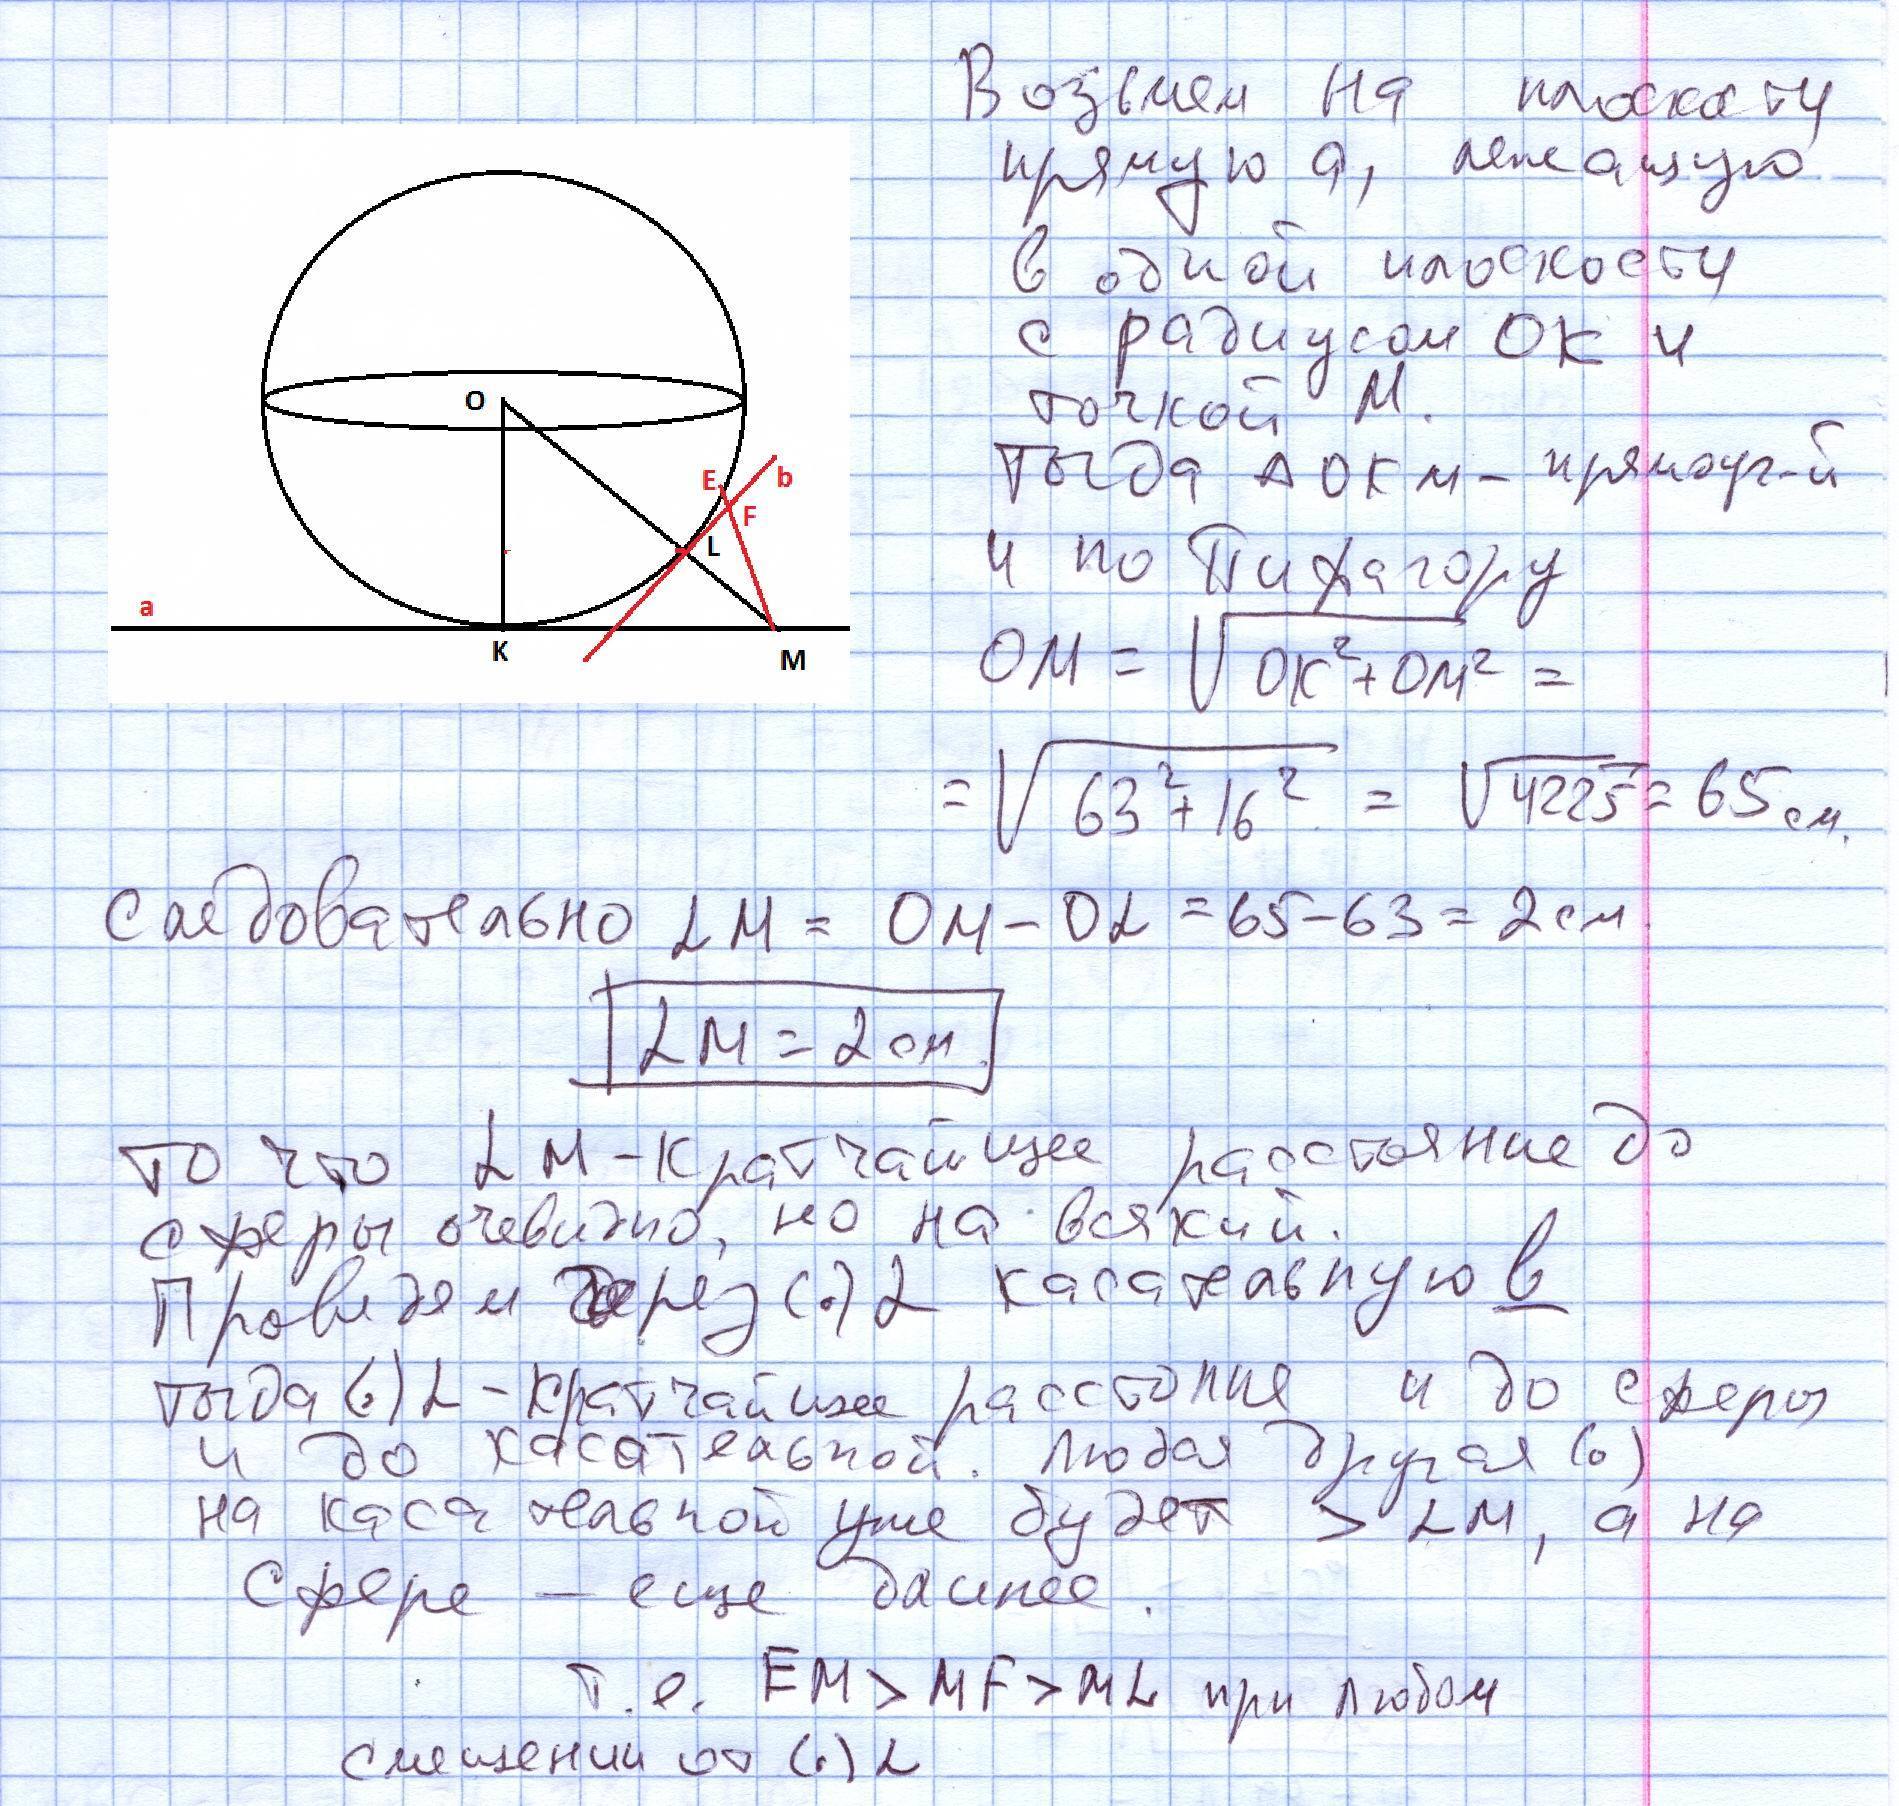 Возьмем на плоскости
прямую а, лежащую
в одной плоскости
с радиусом ОК и
точкой М.
Тогда ΔОКМ - прямоуг-й
и по Пифагору
ОМ = √ОК²+ОМ² =
= √63²+16² = √4225 = 65 см.
O
E
b
F
L
a
K
M
Следовательно LM = OM - OL = 65-63 = 2 см.
LM = 2 см.
То что LM - кратчайшее расстояние до
сферы очевидно, но на всякий.
Проведем через (.) L касательную в
тогда (.) L - кратчайшее расстояние и до сферы
и до касательной. Любая другая (.)
на касательной уже будет > LM, а на
сфере - еще далее.
т.е. EM > MF > ML при любом
смещении от (.) L